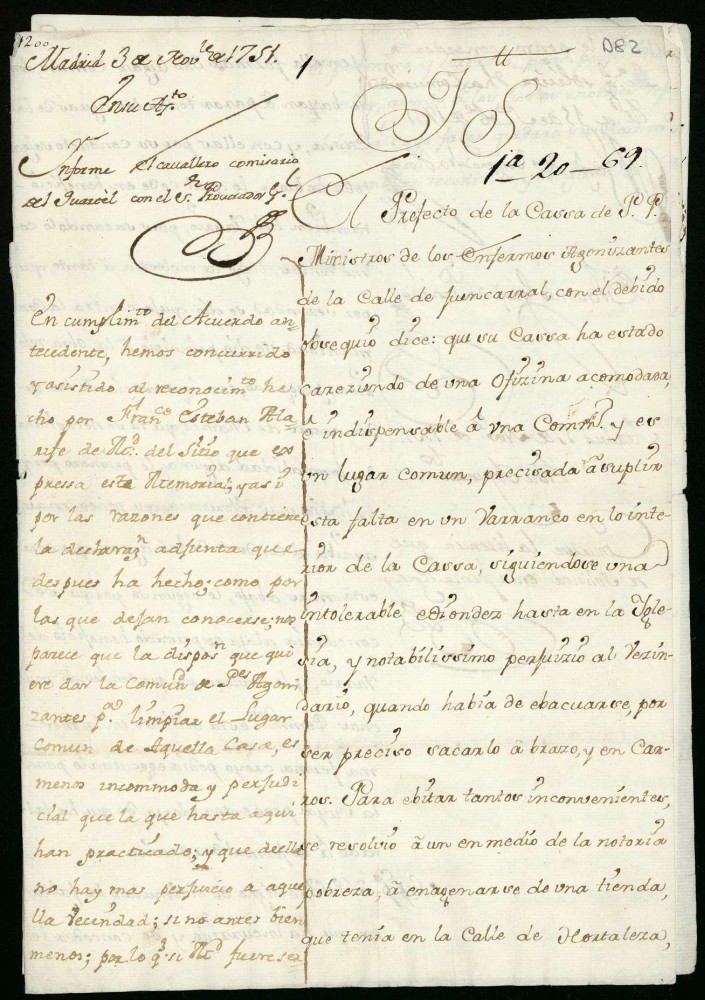 1200
D82
Madrid 3 de Novre de 1751.
En su Ayto
Ynforme el cavallero comisario
del Quartel con el Sr. Procurador Gl.
Ill
S
1a 20-69.
El Prefecto de la Cassa de P. P.
Ministros de los Enfermos Agonizantes
de la Calle de fuencarral, con el debido
obsequio dice: que su Cassa ha estado
careziendo de una Ofizina acomodada,
è indispensable àl vna Comd. y es
un lugar comun, precisada à suplir
esta falta en vn Varranco en lo inte-
rior de la Cassa, siguiendose una
intolerable ediondez hasta en la Igle-
sia, y notabilissimo perjuizio al Vezin-
dario, quando habia de ebacuarse, por
ser preciso sacarlo à brazo, y en Car-
ros. Para ebitar tantos inconvenientes,
se resolviò à un en medio de la notoria
pobreza, à enagenarse de una tienda,
que tenia en la Calle de Hortaleza,
En cumplimto del Acuerdo an-
tecedente, hemos concurrido
y asistido al reconocimto he-
cho por Franco Esteban Ala-
rife de Md. del Sitio que ex-
pressa este Memorial; y asi
por las razones que contiene
la declarazn adjunta que
despues ha hecho; como por
las que dejan conocerse; nos
parece que la disposn que qui
ere dar la Comun de Pes Agoni
zantes pa limpiar el Lugar
comun de Aquella Casa, es
menos incommoda y perjudi
cial que la que hasta aqui
han practicado; y que de ella
no hay mas perjuicio a aque
lla vecindad; si no antes bien
menos; por lo q. si Md fuere ser